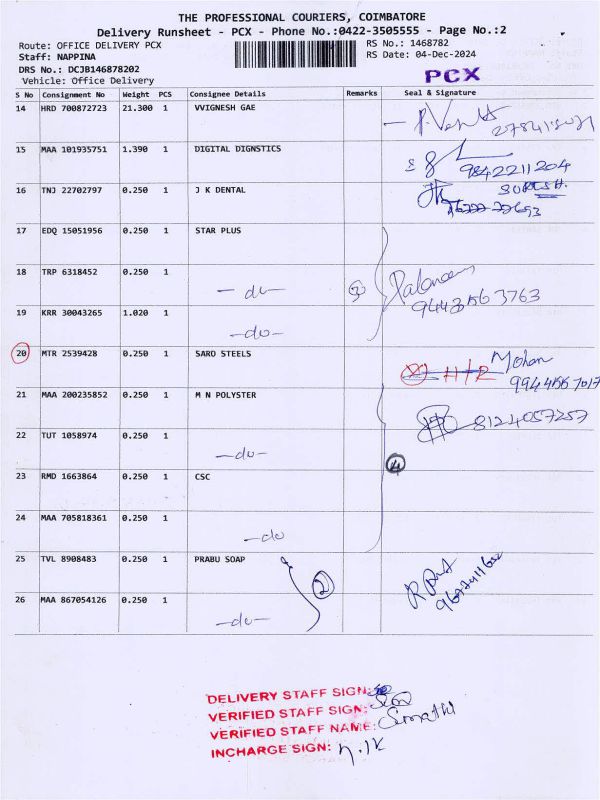 THE PROFESSIONAL COURIERS, COIMBATORE
Delivery Runsheet - PCX - Phone No.:0422-3505555 - Page No.:2
Route: OFFICE DELIVERY PCX RS No.: 1468782
Staff: NAPPINA RS Date: 04-Dec-2024
DRS No.: DCJB146878202
Vehicle: Office Delivery PCX
S No Consignment No Weight PCS Consignee Details Remarks Seal & Signature
14 HRD 700872723 21.300 1 VVIGNESH GAE
15 MAA 101935751 1.390 1 DIGITAL DIGNSTICS
9842211204
16 TNJ 22702797 0.250 1 J K DENTAL
SURESH.
17 EDQ 15051956 0.250 1 STAR PLUS
18 TRP 6318452 0.250 1
- do - 3
19 KRR 30043265 1.020 1
- do -
20 MTR 2539428 0.250 1 SARO STEELS
Mohan
21 MAA 200235852 0.250 1 M N POLYSTER
8124057257
22 TUT 1058974 0.250 1
- do -
4
23 RMD 1663864 0.250 1 CSC
24 MAA 705818361 0.250 1
- do
25 TVL 8908483 0.250 1 PRABU SOAP
2
26 MAA 867054126 0.250 1
- do -
DELIVERY STAFF SIGN:
VERIFIED STAFF SIGN:
VERIFIED STAFF NAME:
INCHARGE SIGN: